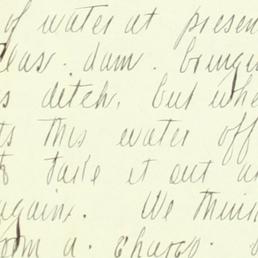 of water at presen
dam. bringin
s ditch, but whe
ts this water off
to take it out a
again. We think
from a. charge.